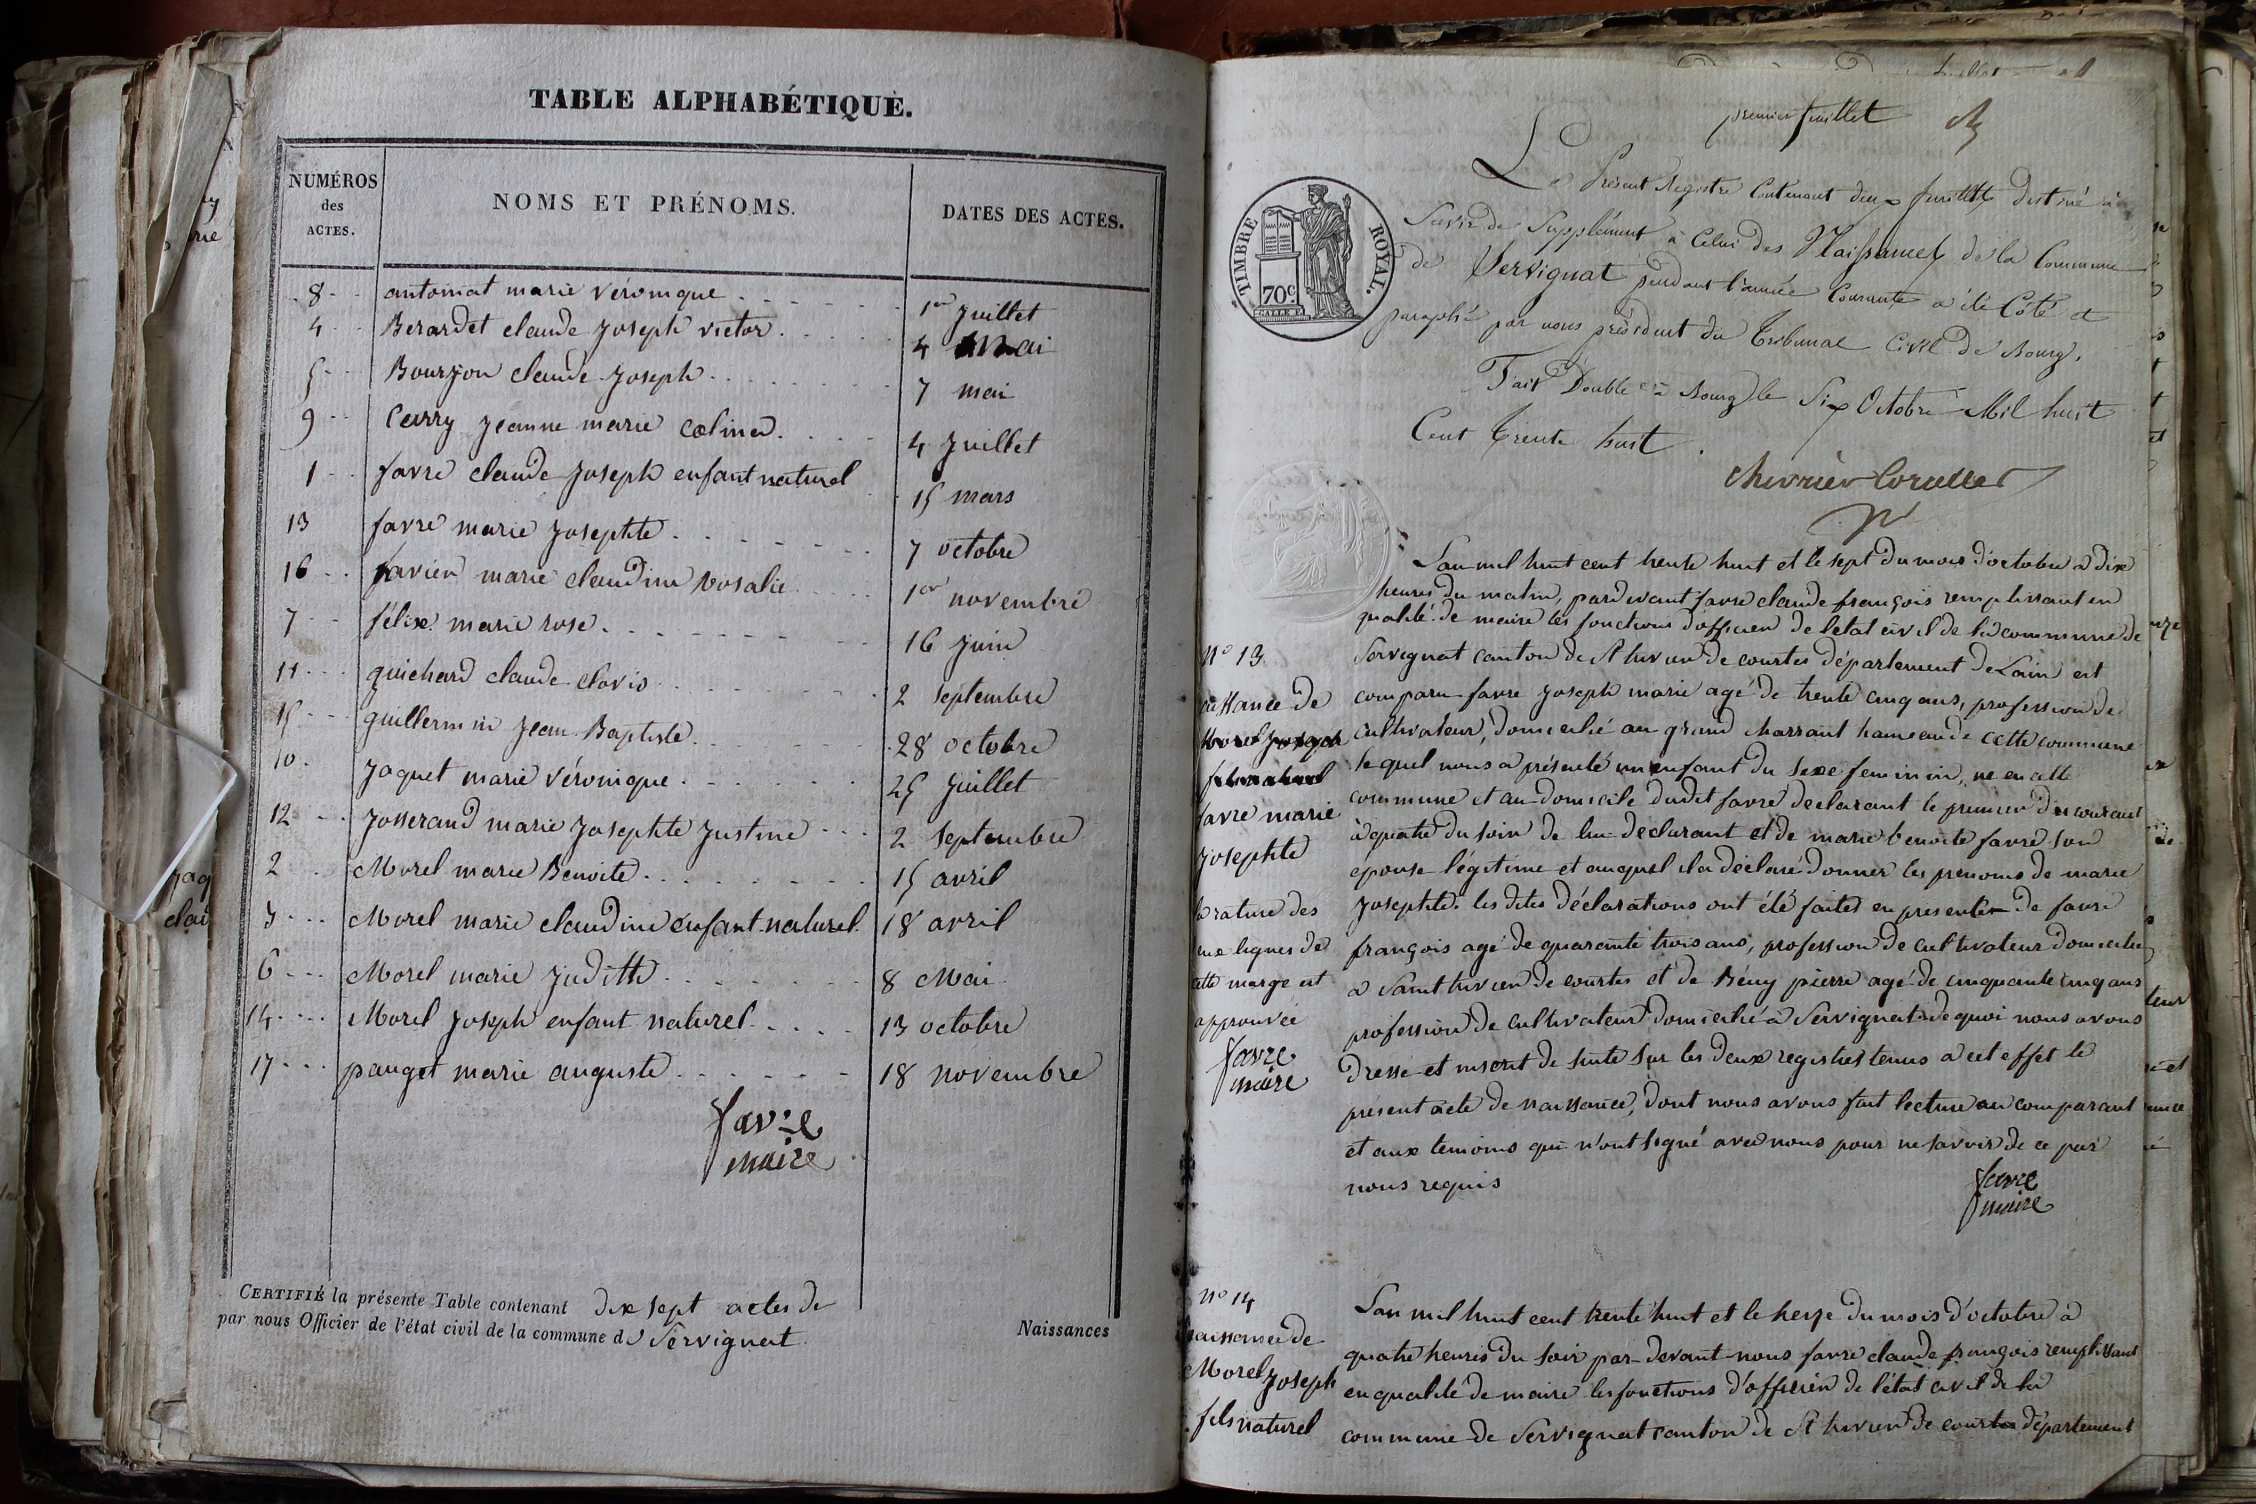 TABLE ALPHABÉTIQUE.
NUMÉROS des ACTES.
NOMS ET PRÉNOMS.
DATES DES ACTES.
8 antoinat marie véronique 1er juillet
4 Berardet claude joseph victor 4 mai
5 Bourjon claude joseph 7 mai
9 Carry jeanne marie celina 4 juillet
1 favre claude joseph enfant naturel 15 mars
13 favre marie josephte 7 octobre
16 favier marie claudine rosalie 1er novembre
7 félix marie rose 16 juin
11 guichard claude clovis 2 septembre
15 guillermin jean Baptiste 28 octobre
10 jaquet marie véronique 25 juillet
12 josserand marie josephte justine 2 septembre
2 Morel marie Benoite 15 avril
3 Morel marie claudine enfant naturel 18 avril
6 Morel marie judith 8 Mai
14 Morel joseph enfant naturel 13 octobre
17 pauget marie auguste 18 novembre
favre
maire
CERTIFIÉ la présente Table contenant dix sept actes de
par nous Officier de l'état civil de la commune de Servignat
Naissances
premier feuillet
TIMBRE ROYAL.
70c.
Le Présent Registre Contenant deux feuillets destiné à
Servir de Supplément à Celui des Naissances de la Commune
de Servignat pendant l'année Courante a été Côté et
paraphé par nous président du Tribunal Civil de Bourg.
Fait Double à Bourg le Six Octobre Mil huit
Cent trente huit.
chevrier Corcelles
L'an mil huit cent trente huit et le sept du mois d'octobre à dix
heures du matin, pardevant favre claude françois remplissant en
qualité de maire les fonctions d'officier de l'état civil de la commune de
Servignat canton de St trivier de courtes département de L'ain est
comparu favre joseph marie agé de trente cinq ans, profession de
cultivateur, domicilié au grand charrant hameau de cette commune
lequel nous a présenté un enfant du sexe feminin, né en cette
commune et au domicile dudit favre déclarant le premier du courant
à quatre du soir de lui declarant et de marie benoite favre son
épouse légitime et auquel il a déclaré donner les prenoms de marie
josephte. les dites déclarations ont été faites en presente de favre
françois agé de quarante trois ans, profession de cultivateur domicilié
à Saint trivier de courtes et de Béuy pierre agé de cinquante cinq ans
profession de cultivateur domicilié à Servignat. de quoi nous avons
dressé et inscrit de suite sur les deux registres tenus a cet effet le
present acte de naissance, dont nous avons fait lecture au comparant
et aux temoins qui n'ont signé avec nous pour ne savoir de ce par
nous requis
favre
maire
N° 13
naissance de
Morel joseph
fils naturel
favre marie
josephte
la rature des
deux lignes de
cette marge est
approuvée
favre
maire
N° 14
naissance de
Morel joseph
fils naturel
L'an mil huit cent trente huit et le treize du mois d'octobre à
quatre heures du soir par-devant nous favre claude françois remplissant
en qualité de maire les fonctions d'officier de l'état civil de la
commune de Servignat canton de St trivier de courtes département